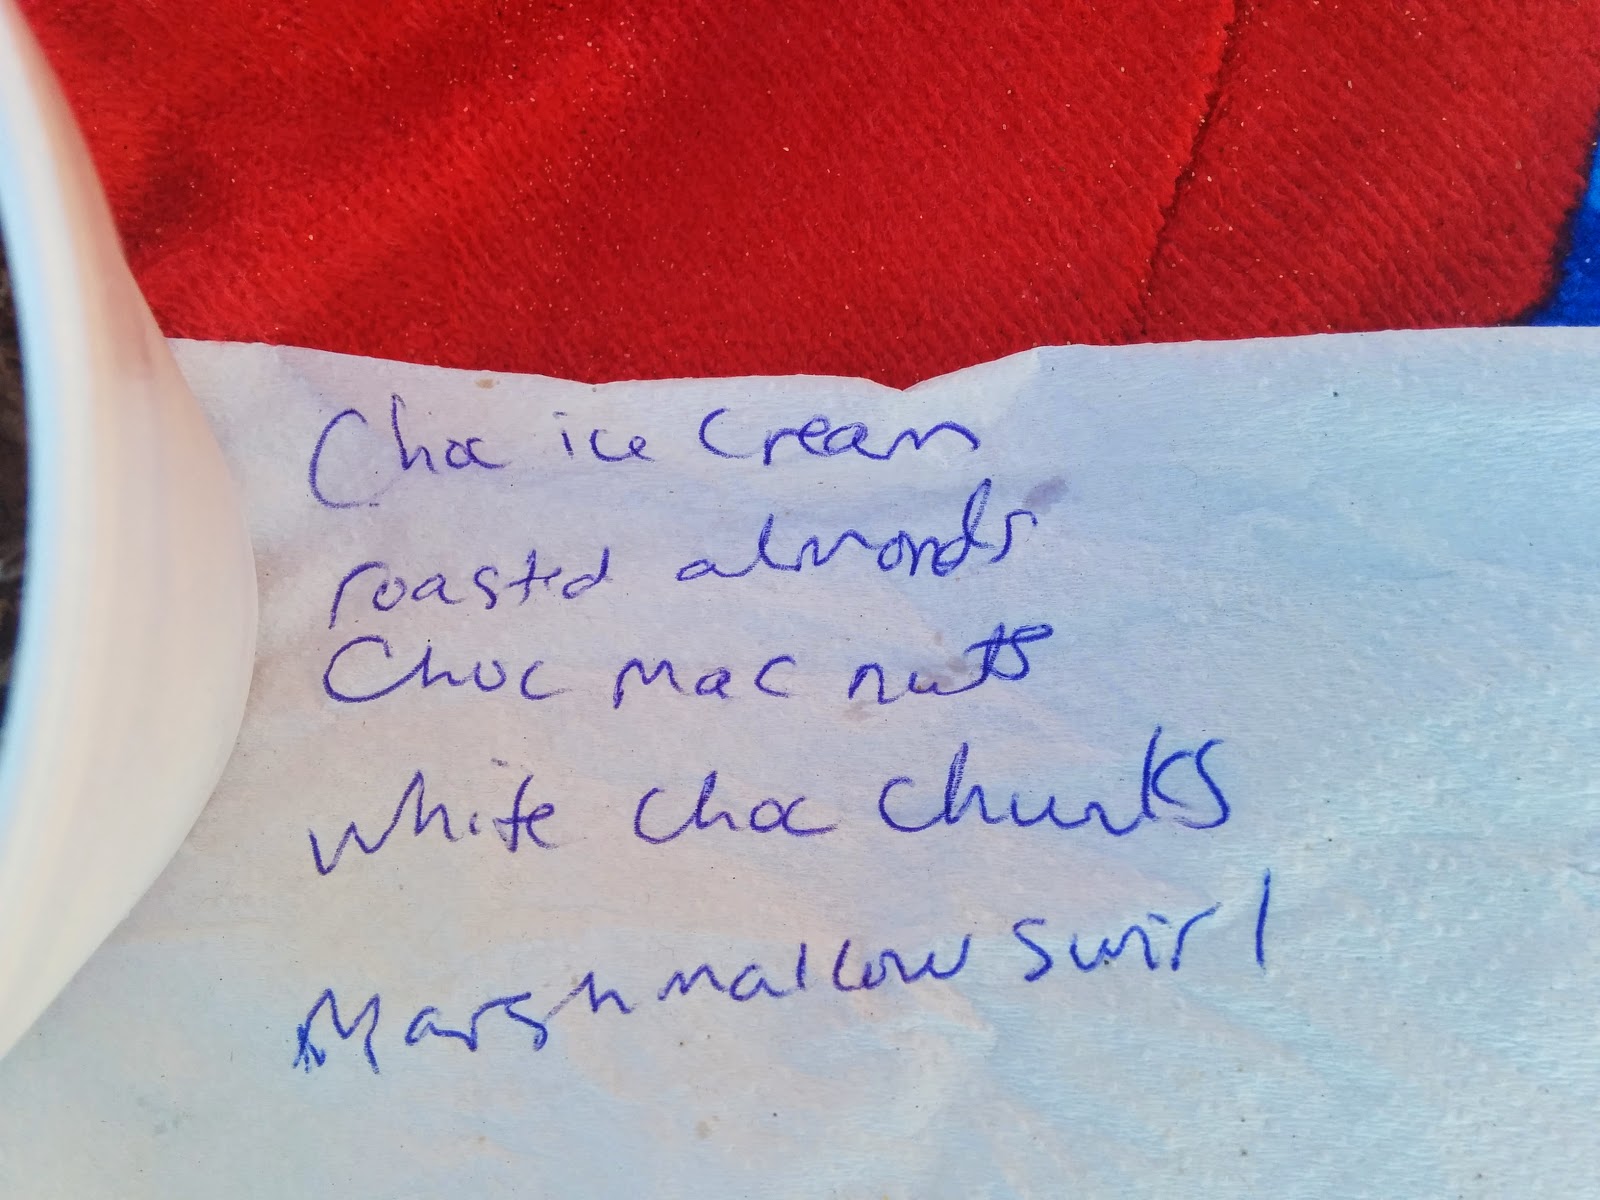 Choc ice cream
roasted almonds
Choc mac nuts
white choc chunks
Marshmallow swirl